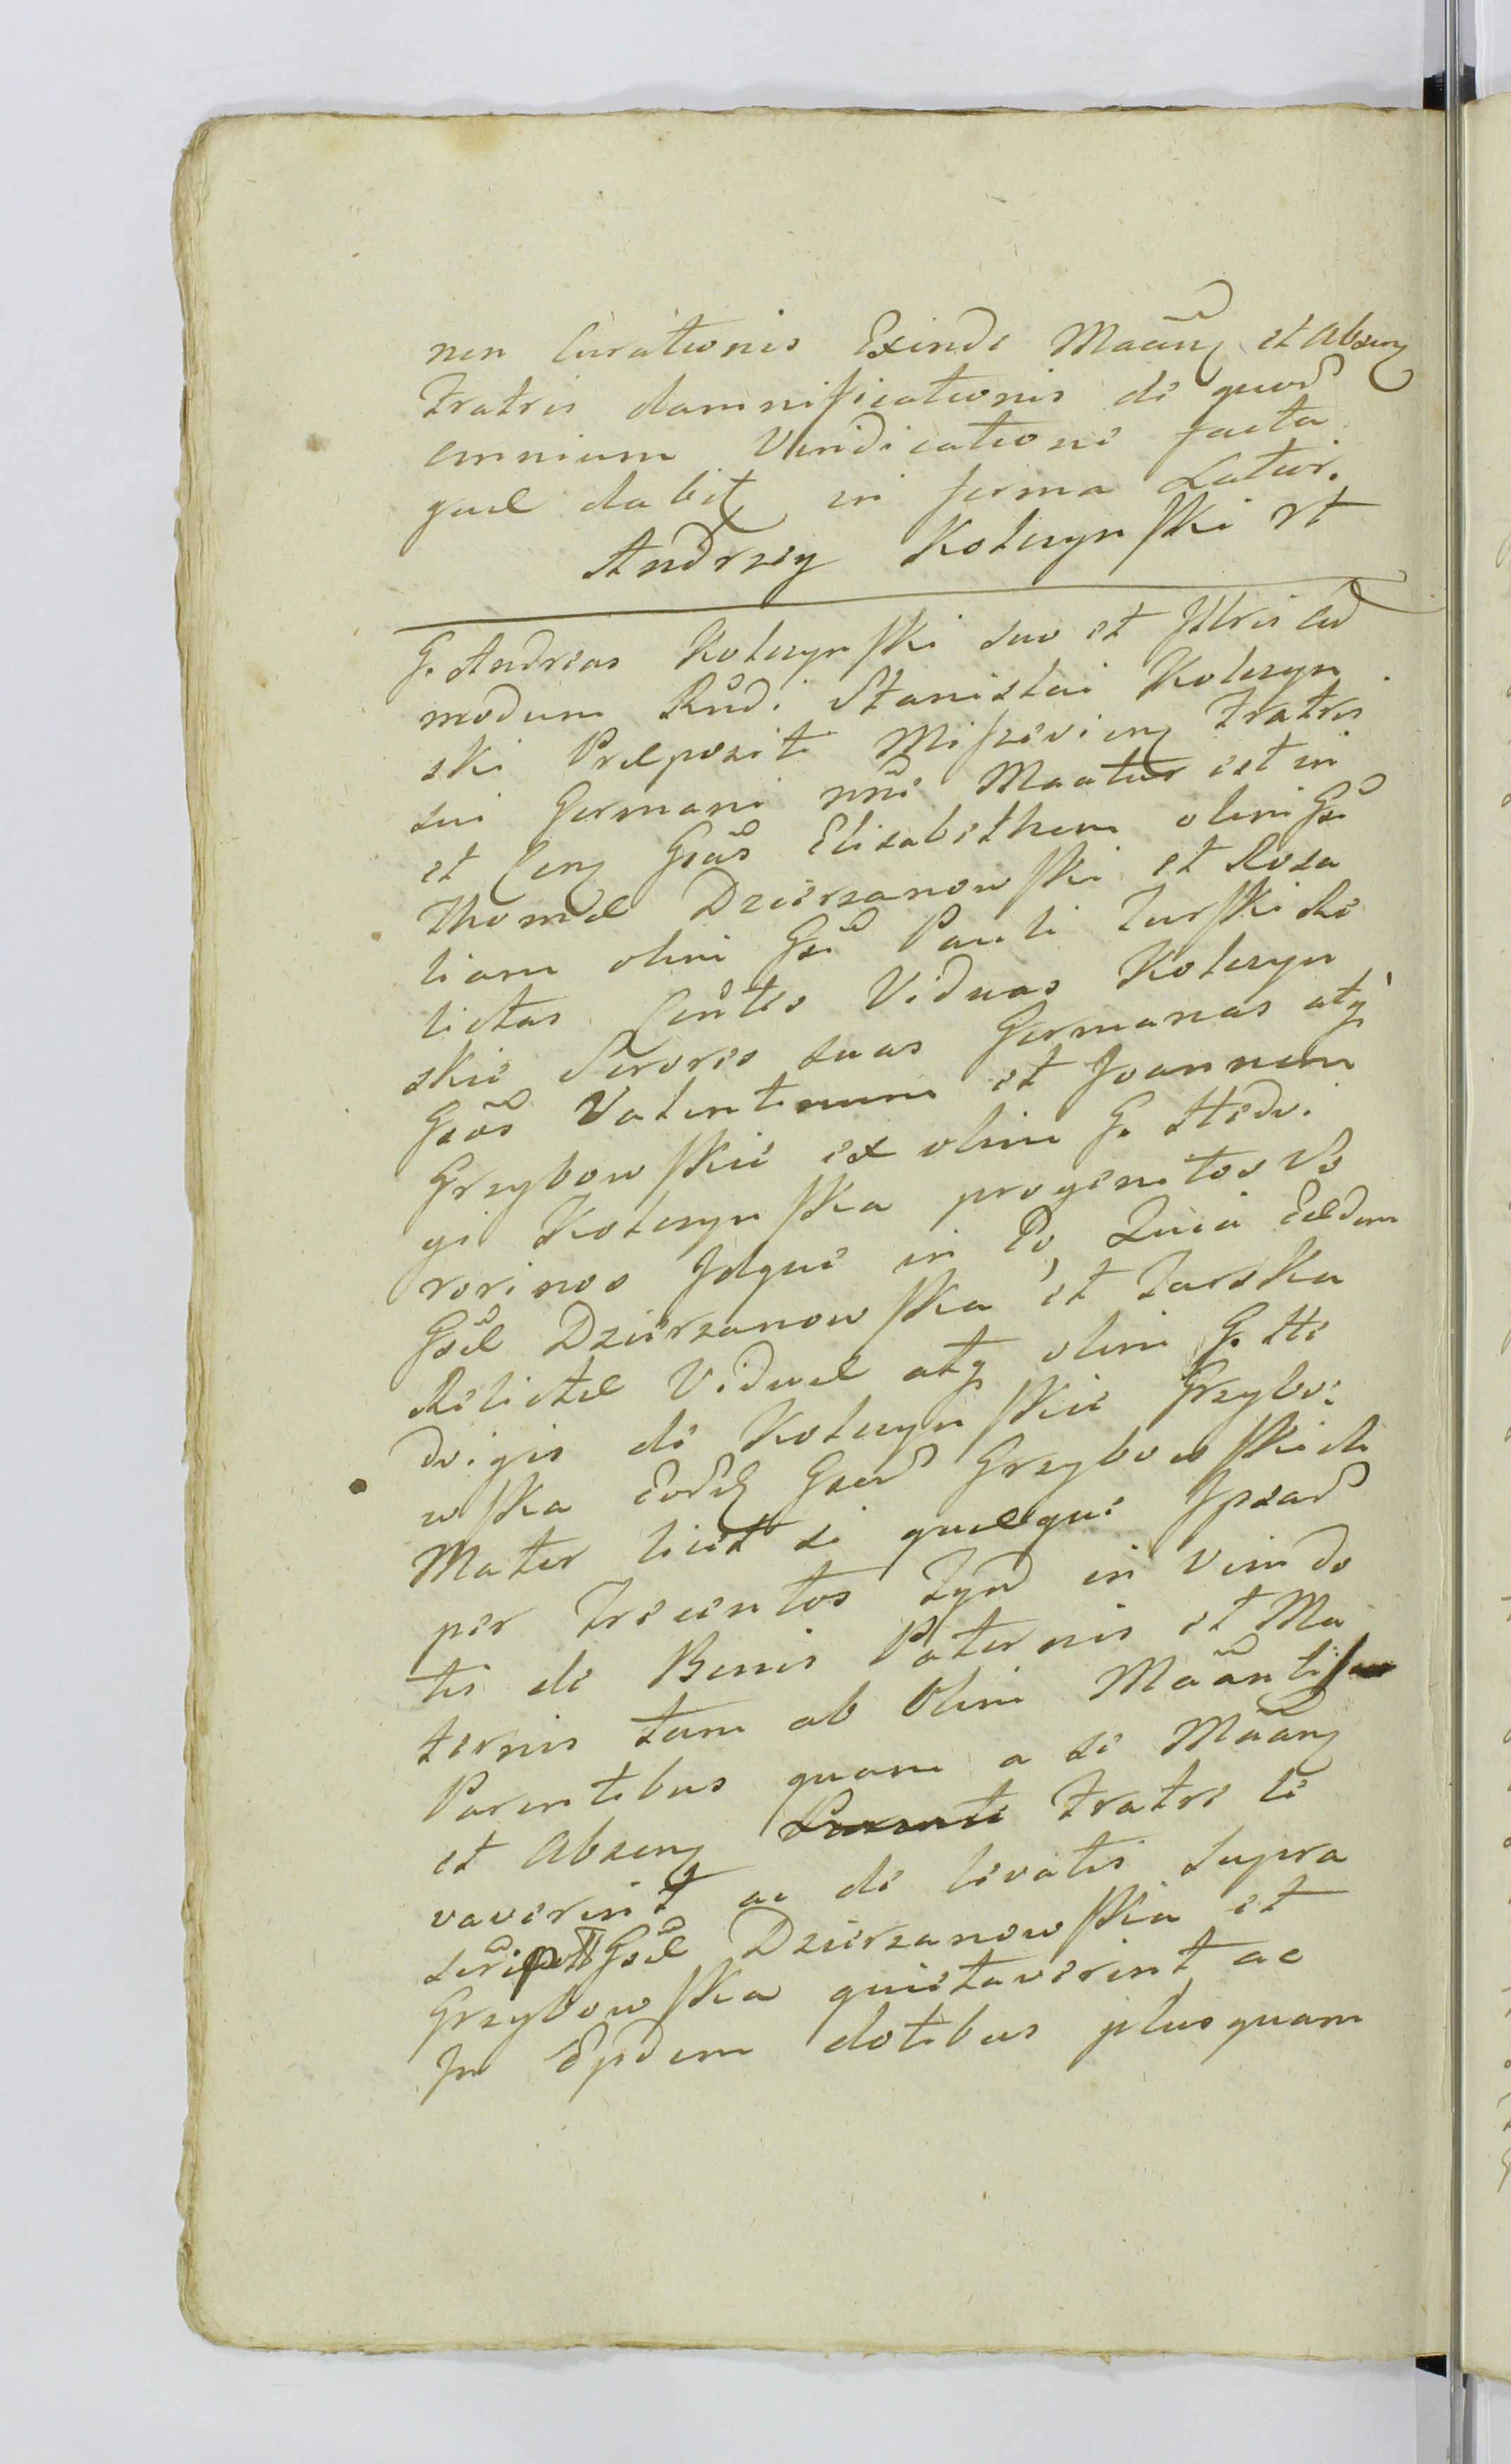 nen Curationis Exinde Maãnt et Absent
Fratris damnificationis de quor
omnium Vindicatione facta
quæ dabit in forma Latior.
Andrzey Kołczynski rt
G. Andreas Kołczynski suo et Illris ad
modum Rndi Stanislai Kołczyn
ski Præpositi Misseviens Fratris
sui Germani nñe Maatur est in
et Cont Gsas Elisabetham olim Gsi
Thomæ Dzierzanowski et Rosa
liam olim Gsi Pauli Turski Re
lictas Contes Viduas Kołczyn
skie Sorores suas Germanas atq
Gsos Valentinum et Joannem
Grzybowskie ex olim G. Hedvi
gi Kołczynska progenitos So
rorinos Idque in Eo, Quia Eædem
Gsæ Dzierzanowska et Turska
Relictæ Viduæ atq olim G. He
dvigis de Kołczynskie Grzybo:
wska eod Gsor Grzybowskich
Mater licet se quæque Ipsar
per Trecentos Tyn in Vim do
tis de Bonis Paternis et Ma
ternis tam ab Olim Maãnti
Parentibus quam a se Maãnt
et Absent Parente Fratre le
vaverint ac de levatis supra
script Gsæ Dzierzanowska et
Grzybowska quietaverint ac
In Epdem dotibus plusquam